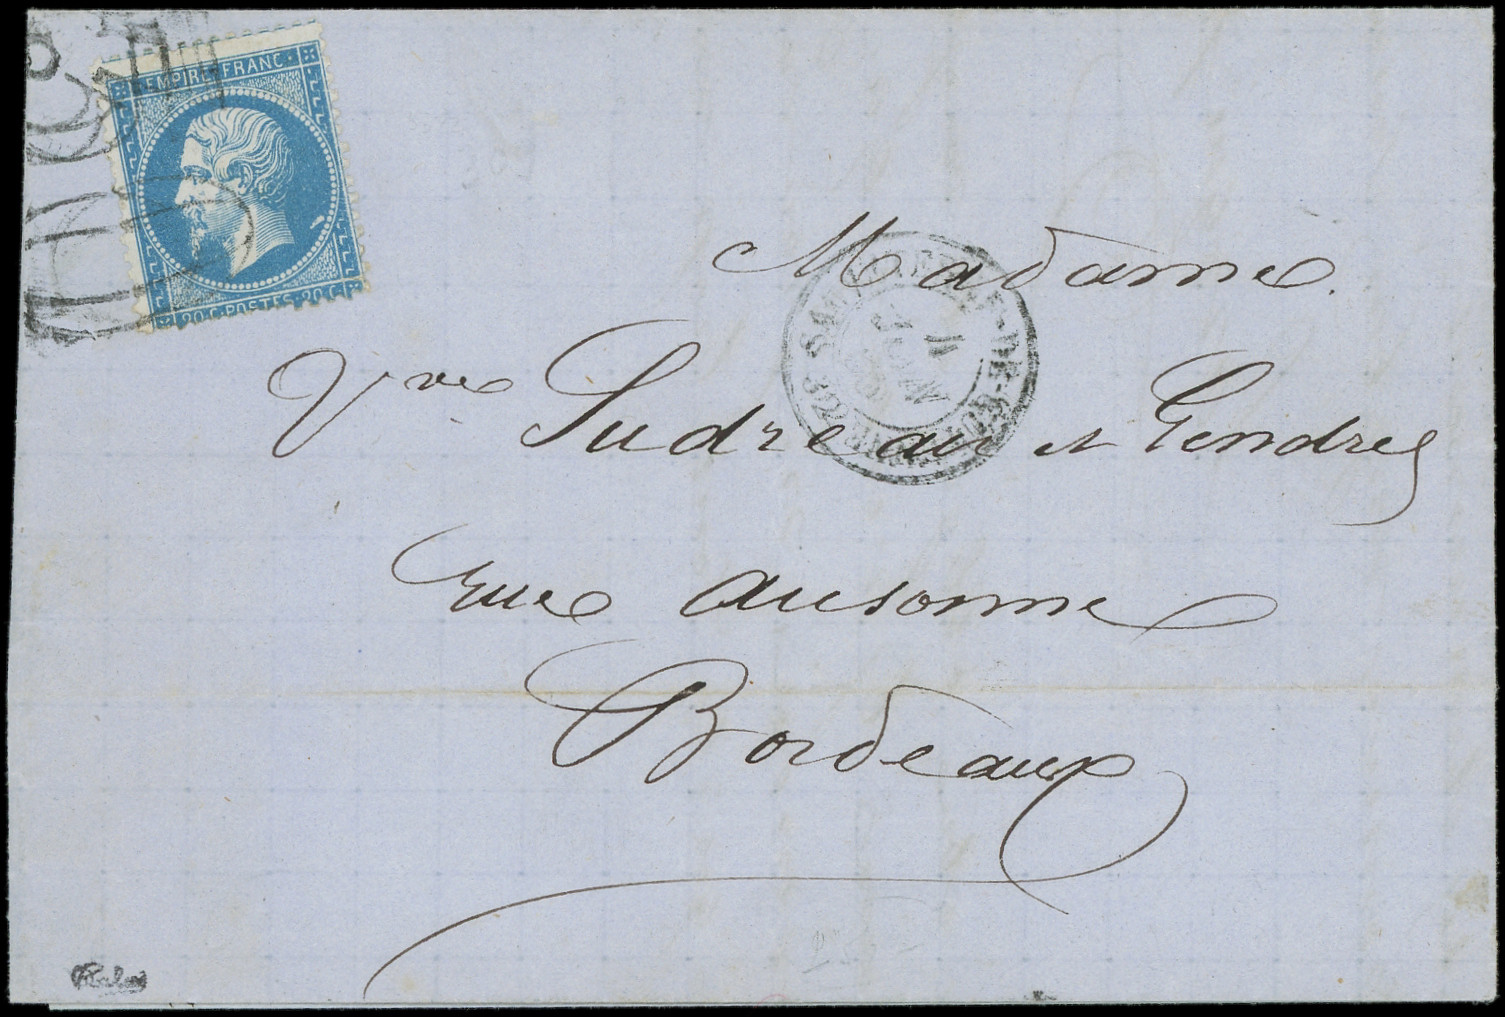 EMPIRE FRANC
20 C POSTES 20 C
Madame
Vve Sudreau et Gendres
Rue Ausonne
Bordeaux